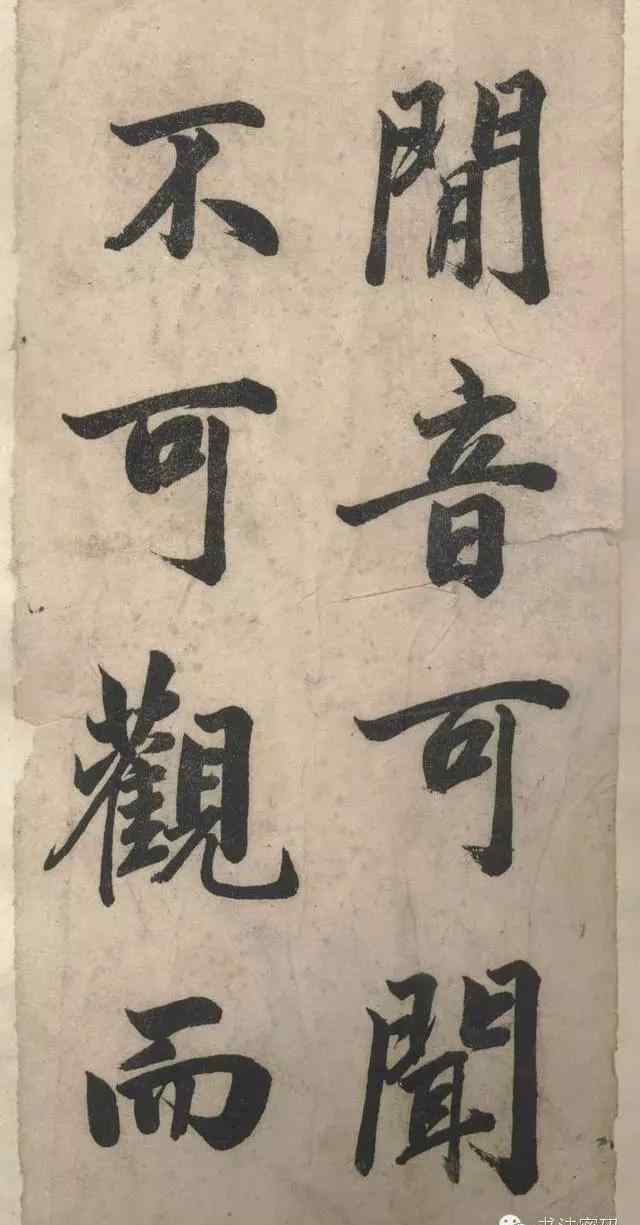 閒音可聞
不可觀而